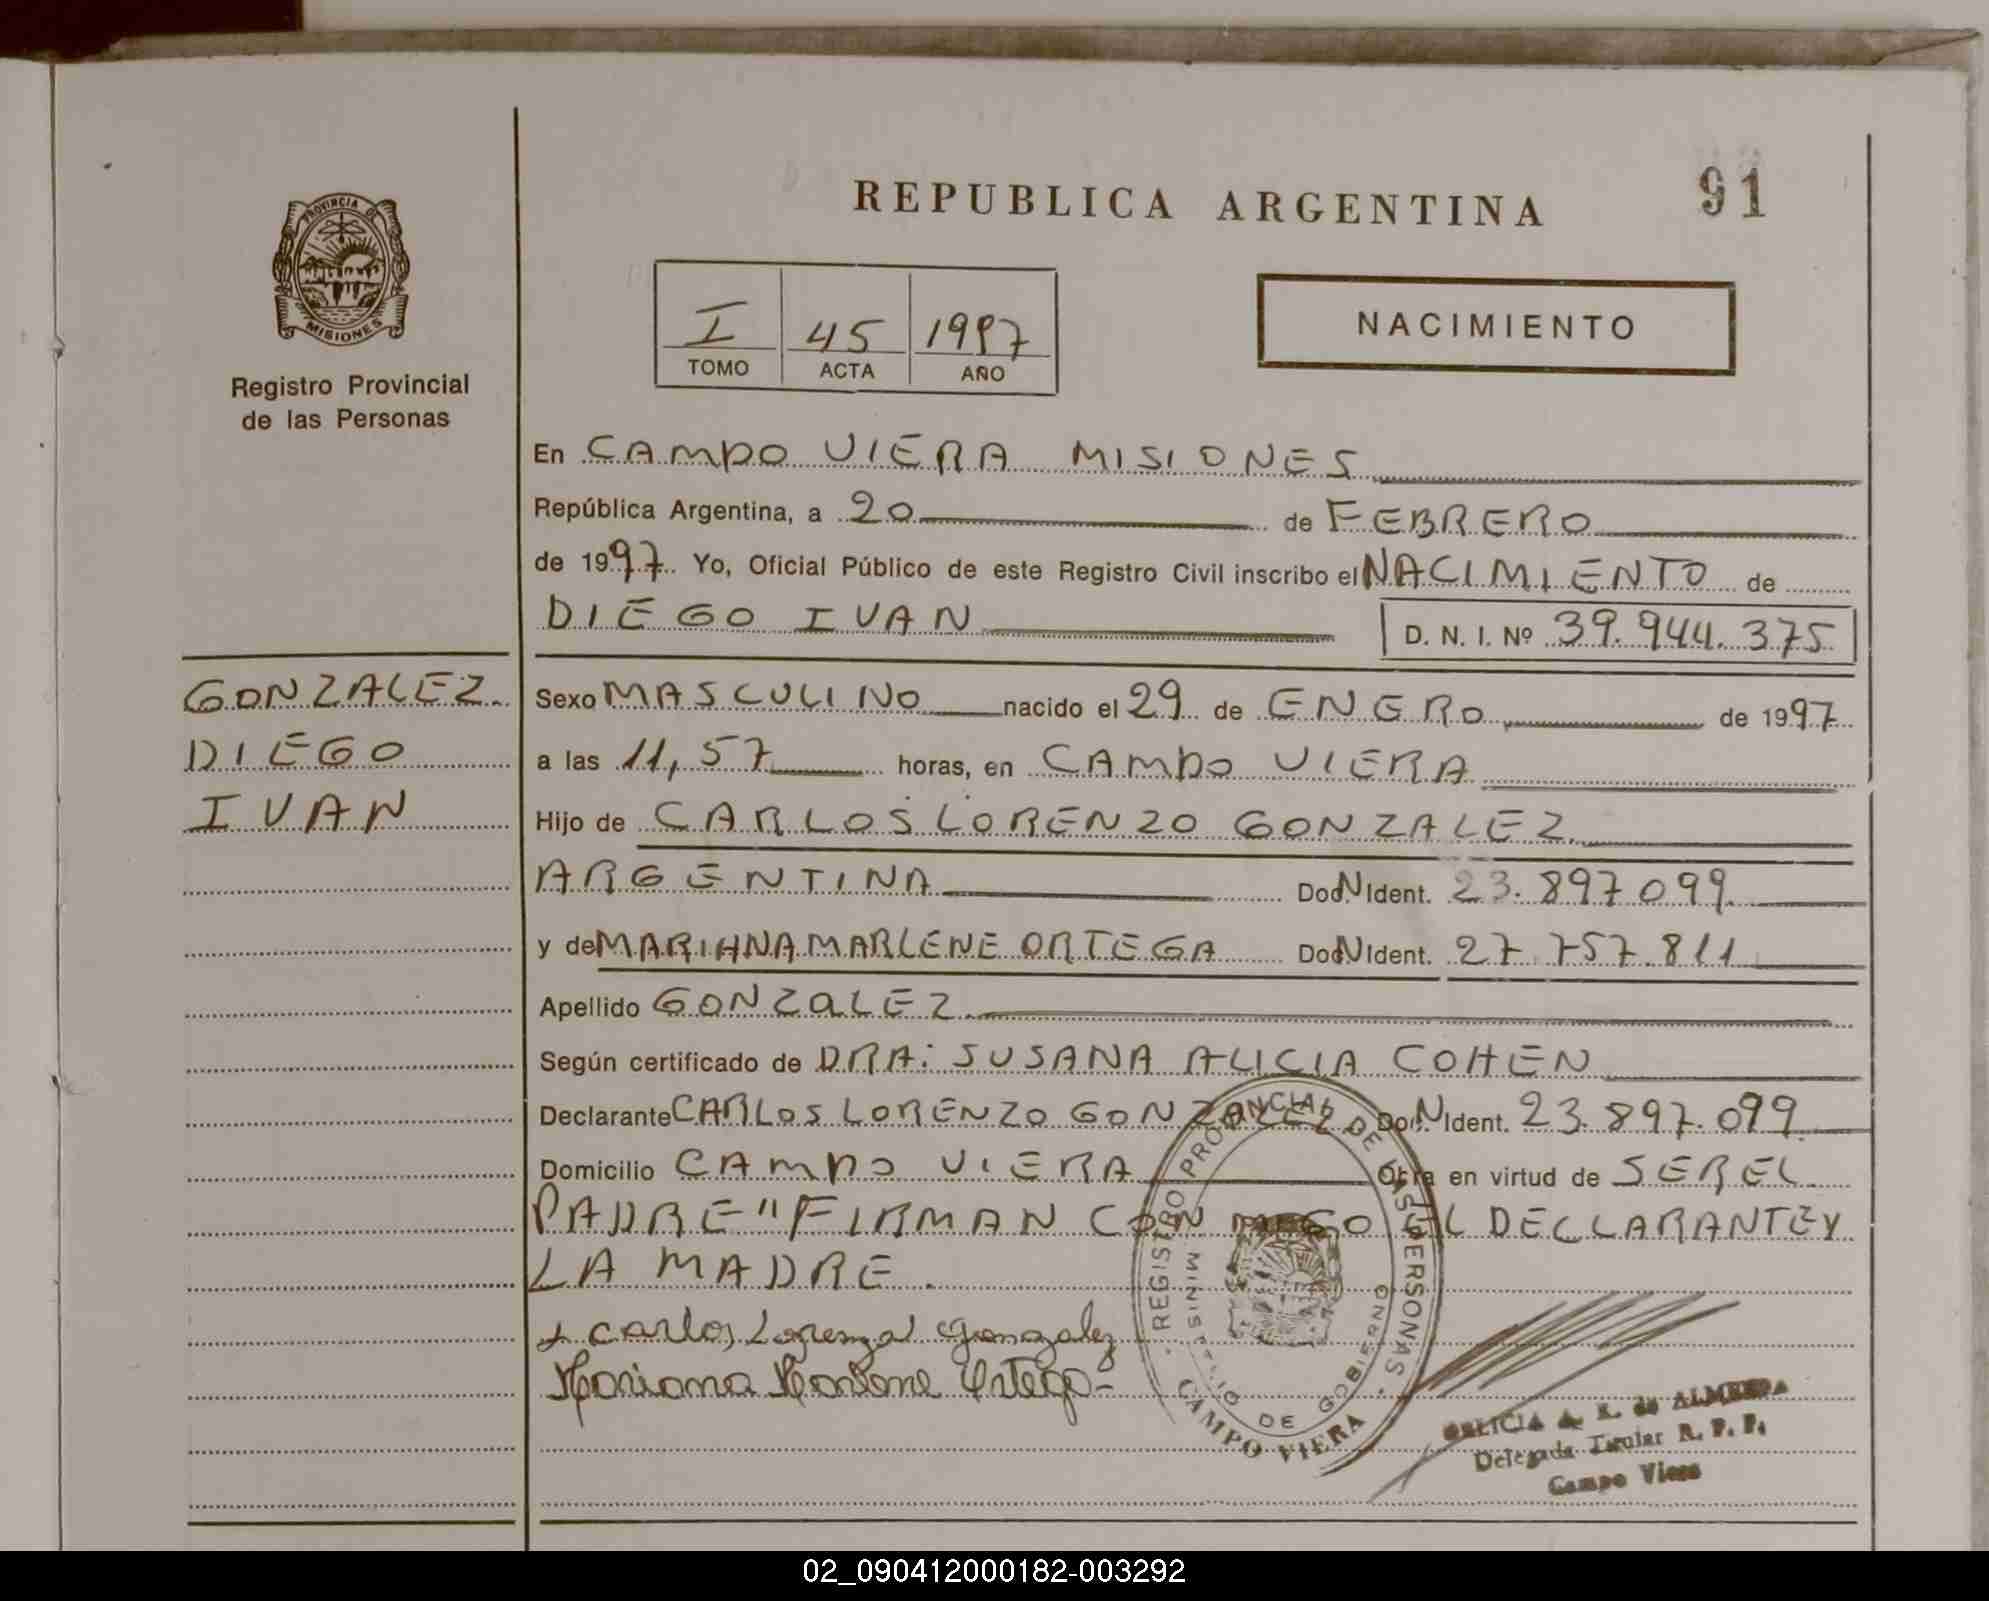 REPUBLICA ARGENTINA
91
PROVINCIA DE
MISIONES
Registro Provincial
de las Personas
I 45 1997
TOMO ACTA AÑO
NACIMIENTO
En CAMPO VIERA MISIONES
República Argentina, a 20 de FEBRERO
de 1997 Yo, Oficial Público de este Registro Civil inscribo el NACIMIENTO de
DIEGO IVAN D. N. I. Nº 39.944.375
GONZALEZ
DIEGO
IVAN
Sexo MASCULINO nacido el 29 de ENERO de 1997
a las 11,57 horas, en CAMPO VIERA
Hijo de CARLOS LORENZO GONZALEZ
ARGENTINA Doc. N Ident. 23.897099
y de MARIANA MARLENE ORTEGA Doc. N Ident. 27.757.811
Apellido GONZALEZ
Según certificado de DRA: SUSANA ALICIA COHEN
Declarante CARLOS LORENZO GONZALEZ Doc. N Ident. 23.897.099
Domicilio CAMPO VIERA Obra en virtud de SER EL
PADRE" FIRMAN CONMIGO EL DECLARANTE Y
LA MADRE.
Carlos Lorenzo Gonzalez
Mariana Marlene Ortega
REGISTRO PROVINCIAL DE LAS PERSONAS
MINISTERIO DE GOBIERNO
CAMPO VIERA
A. K. de ALMEIDA
Delegada Titular R. P. P.
Campo Viera
02_090412000182-003292